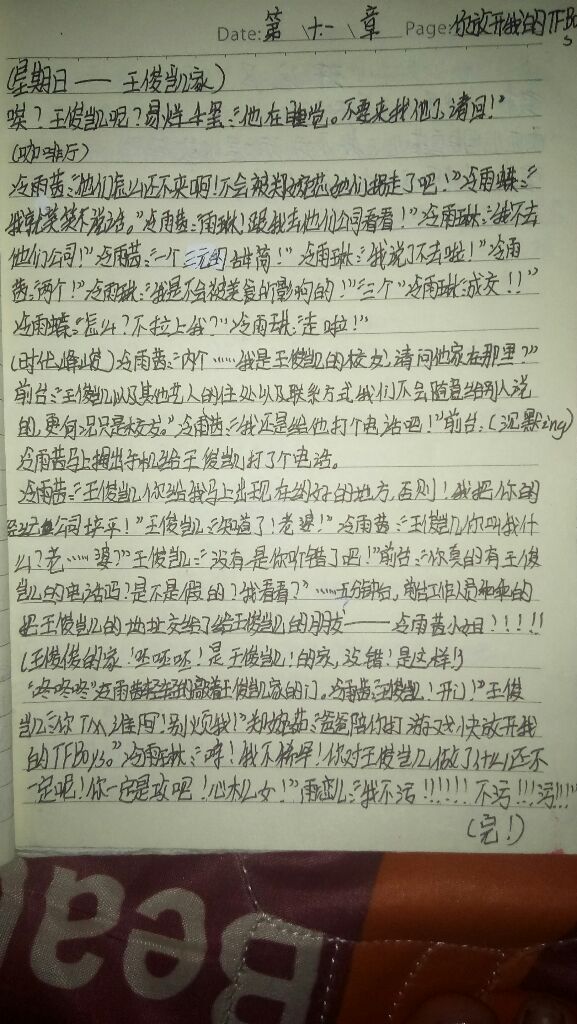 Date: 第十一章 Page: 你放开我的TFBoys
(星期日——王俊凯家)
唉?王俊凯呢?易烊千玺:“他在睡觉。不要来找他了,请回!”
(咖啡厅)
冷雨茜:“他们怎么还不来啊!不会被郑她们拐走了吧!”冷雨蝶:“
我就笑笑不说话。”冷雨茜:“雨琳!跟我去他们公司看看!”冷雨琳:“我不去
他们公司!”冷雨茜:“一个三元的甜筒!”冷雨琳:“我说了不去啦!”冷雨
茜:“两个!”冷雨琳:“我是不会被美食所影响的!”“三个”冷雨琳:“成交!!”
冷雨蝶:“怎么?不拉上我?”冷雨琳:“走啦!”
(时代峰峻)冷雨茜:“内个……我是王俊凯的校友,请问他家在那里?”
前台:“王俊凯以及其他艺人的住处以及联系方式我们不会随意给别人说
的,更何况只是校友。”冷雨茜:“我还是给他打个电话吧!”前台:(沉默ing)
冷雨茜马上掏出手机给王俊凯打了个电话。
冷雨茜:“王俊凯你给我马上出现在约好的地方,否则!我把你的
经纪公司掀平!”王俊凯:“知道了!老婆!”冷雨茜:“王俊凯你叫我什
么?老……婆?”王俊凯:“没有是你听错了吧!”前台:“你真的有王俊
凯的电话吗?是不是假的?我看看?”……五分钟后,前台工作人员乖乖的
把王俊凯的地址交给了给王俊凯的朋友——冷雨茜小姐!!!!!
(王俊俊的家!呸呸呸!是王俊凯!的家,没错!是这样!)
“咚咚咚”冷雨茜轻轻的敲着王俊凯家的门。冷雨茜:“王俊凯!开门!”王俊
凯:“你TM谁阿!别烦我!”郑:“爸爸陪你打游戏!快放开我
的TFBoys。”冷雨琳:“哼!我不稀罕!你对王俊凯做了什么还不
一定呢!你一定是攻吧!心机女!”雨恋儿:“我不污!!!!!!不污!!!污!!!”
(完!)
Bea